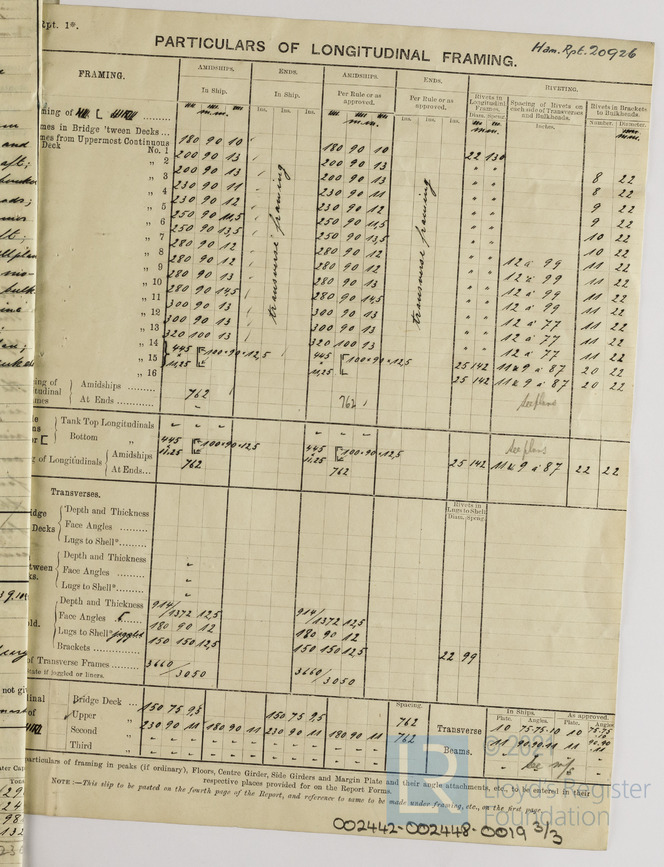 Rpt. 1*.
Ham. Rpt. 20926
PARTICULARS OF LONGITUDINAL FRAMING.
FRAMING. AMIDSHIPS. ENDS. AMIDSHIPS. ENDS. RIVETING.
In Ship. In Ship. Per Rule or as approved. Per Rule or as approved. Rivets in Longitudinal Frames. Spacing of Rivets on each side of Transverses and Bulkheads. Rivets in Brackets to Bulkheads.
Ins. Ins. Ins. Ins. Ins. Ins. Diam. Spacg. Inches. Number. Diameter.
m.m. m.m. m.m.
ming of
mes in Bridge 'tween Decks ...
mes from Uppermost Continuous
Deck No. 1 180 90 10 180 90 10 22 130
„ 2 200 90 13 200 90 13 " "
„ 3 200 90 13 200 90 13 " " 8 22
„ 4 230 90 11 230 90 11 " " 8 22
„ 5 230 90 12 230 90 12 " " 9 22
„ 6 250 90 11,5 250 90 11,5 " " 9 22
„ 7 250 90 13,5 250 90 13,5 " " 10 22
„ 8 280 90 12 280 90 12 " " 10 22
„ 9 280 90 12 280 90 12 " " 12 à 99 11 22
„ 10 280 90 13 280 90 13 " " 12 à 99 11 22
„ 11 280 90 14,5 280 90 14,5 " " 12 à 99 11 22
„ 12 300 90 13 300 90 13 " " 12 à 99 11 22
„ 13 300 90 13 300 90 13 " " 12 à 77 11 22
„ 14 320 100 13 320 100 13 " " 12 à 77 11 22
„ 15 445 [100•90•12,5 445 [100•90•12,5 " " 12 à 77 11 22
„ 16 11,25 11,25 25 142 11 & 9 à 87 20 22
transverse framing
transverse framing
ing of Amidships ......... 762 762 25 142 11 & 9 à 87 20 22
itudinal
mes At Ends ... - see plans
Tank Top Longitudinals - - - - - -
Bottom „ 445 11.25 [100•90•12,5 445 11.25 [100•90•12,5 see plans
g of Longitudinals Amidships 762 762 25 142 11 & 9 à 87 22 22
At Ends...
Transverses. Rivets in Lugs to Shell Diam. Spacg.
idge Depth and Thickness
Decks Face Angles .........
Lugs to Shell*......
Depth and Thickness
tween Face Angles .........
ks. Lugs to Shell*......
Depth and Thickness 914/1372 12,5 914/1372 12,5
old. Face Angles 180 90 12 180 90 12
Lugs to Shell* joggled 150 150 12,5 150 150 12,5
Brackets ............ 22 99
of Transverse Frames .......... 3660/3050 3660/3050
tate if joggled or liners.
Spacing. In Ships. As approved.
Plate. Angles. Plate. Angles
inal Bridge Deck ... 150 75 9,5 150 75 9,5
of Upper „ 230 90 11 180 90 11 230 90 11 180 90 11 762 Transverse 10 75•75•10 10 75•75•10
Second „ - - - - 762 Beams. 11 90•90•11 11 90•90•11
Third „ - - - -
articulars of framing in peaks (if ordinary), Floors, Centre Girder, Side Girders and Margin Plate and their angle attachments, etc., to be entered in their
respective places provided for on the Report Forms.
NOTE :—This slip to be pasted on the fourth page of the Report, and reference to same to be made under framing, etc., on the first page.
002442-002448-0019 3/3
LR
© 2021
Lloyd's Register
Foundation